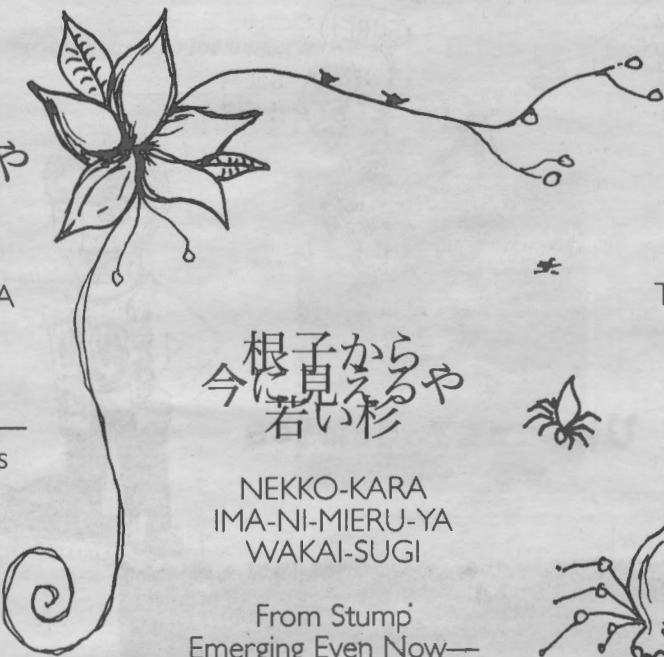 や
A
T
根子から
今に見えるや
若い杉
s
NEKKO-KARA
IMA-NI-MIERU-YA
WAKAI-SUGI
From Stump
Emerging Even Now—